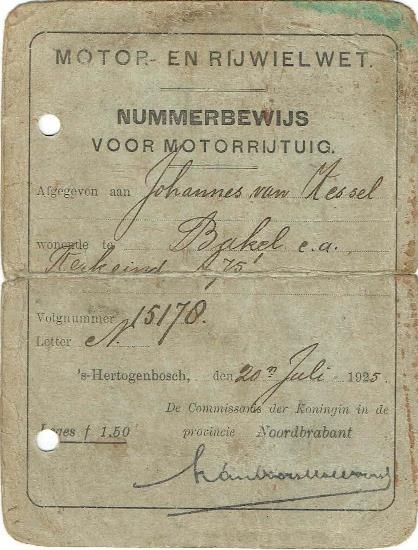 MOTOR- EN RIJWIELWET.
NUMMERBEWIJS
VOOR MOTORRIJTUIG.
Afgegeven aan Johannes van Kessel
wonende te Bakel c.a.
Kerkeind 75
Volgnummer 15178.
Letter N.
's-Hertogenbosch, den 20n Juli 1925.
De Commissaris der Koningin in de
Leges f 1.50 provincie Noordbrabant